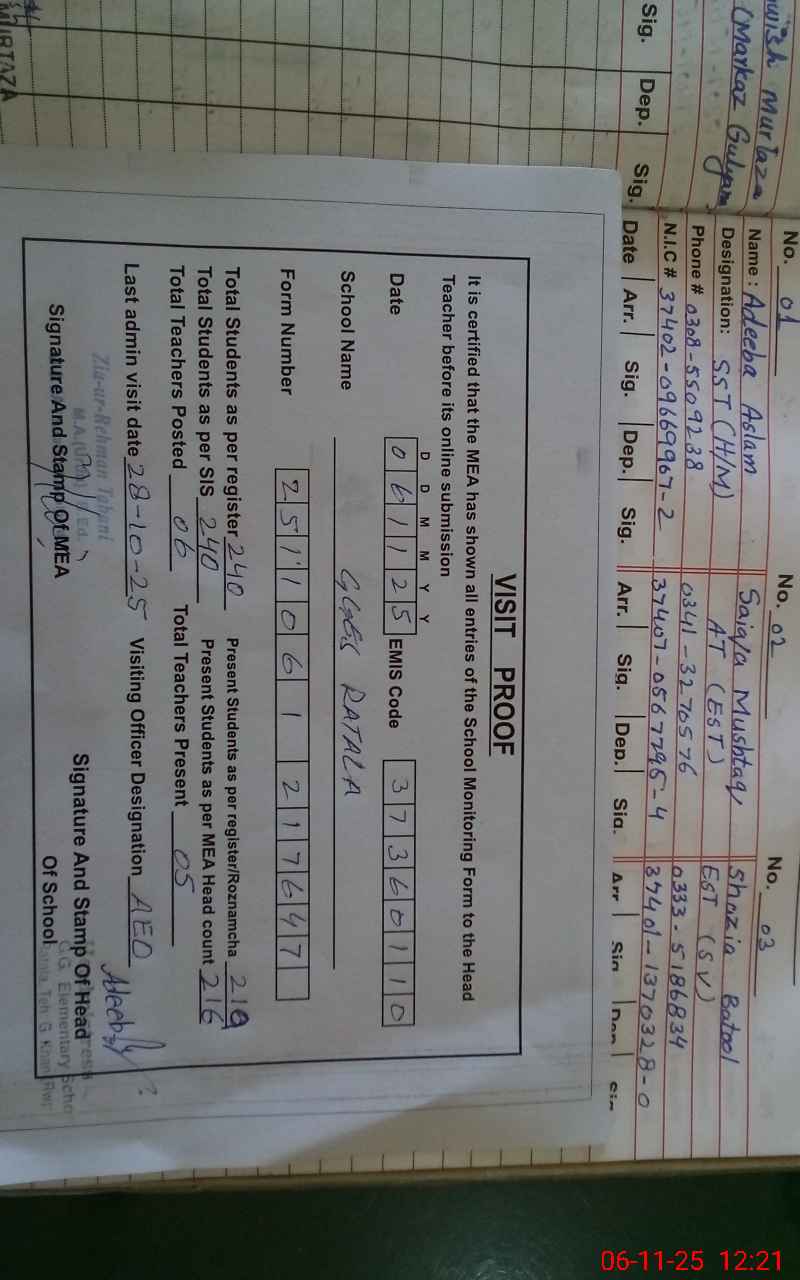 No. 01
Name: Adeeba Aslam
Designation: SST (H/M)
Phone # 0308-5509238
N.I.C # 37402-09669967-2
No. 02
Saiqla Mushtaq
AT (EST)
0341-3270576
37407-0567795-4
No. 03
Shazia Batool
EST (SV)
0333-5186834
37401-1370328-0
Murtaza
(Markaz Gulyam
Sig. Dep. Sig.
Date Arr. Sig. Dep. Sig. Arr. Sig. Dep. Sig. Arr Sig Dep Sig
MURTAZA
VISIT PROOF
It is certified that the MEA has shown all entries of the School Monitoring Form to the Head
Teacher before its online submission
D D M M Y Y
Date 0 6 1 1 2 5 EMIS Code 3 7 3 6 0 1 1 0
School Name GGES RATALA
Form Number 2 5 1 1 0 6 1 2 1 7 6 4 7
Total Students as per register 240 Present Students as per register/Roznamcha 216
Total Students as per SIS 240 Present Students as per MEA Head count 216
Total Teachers Posted 06 Total Teachers Present 05
Last admin visit date 28-10-25 Visiting Officer Designation AEO
Zia-ur-Rehman Tabani
Signature And Stamp Of MEA
Adeeba
Signature And Stamp Of Head
Of School
G.G. Elementary Scho
Teh. G. Khan Rwp
06-11-25 12:21